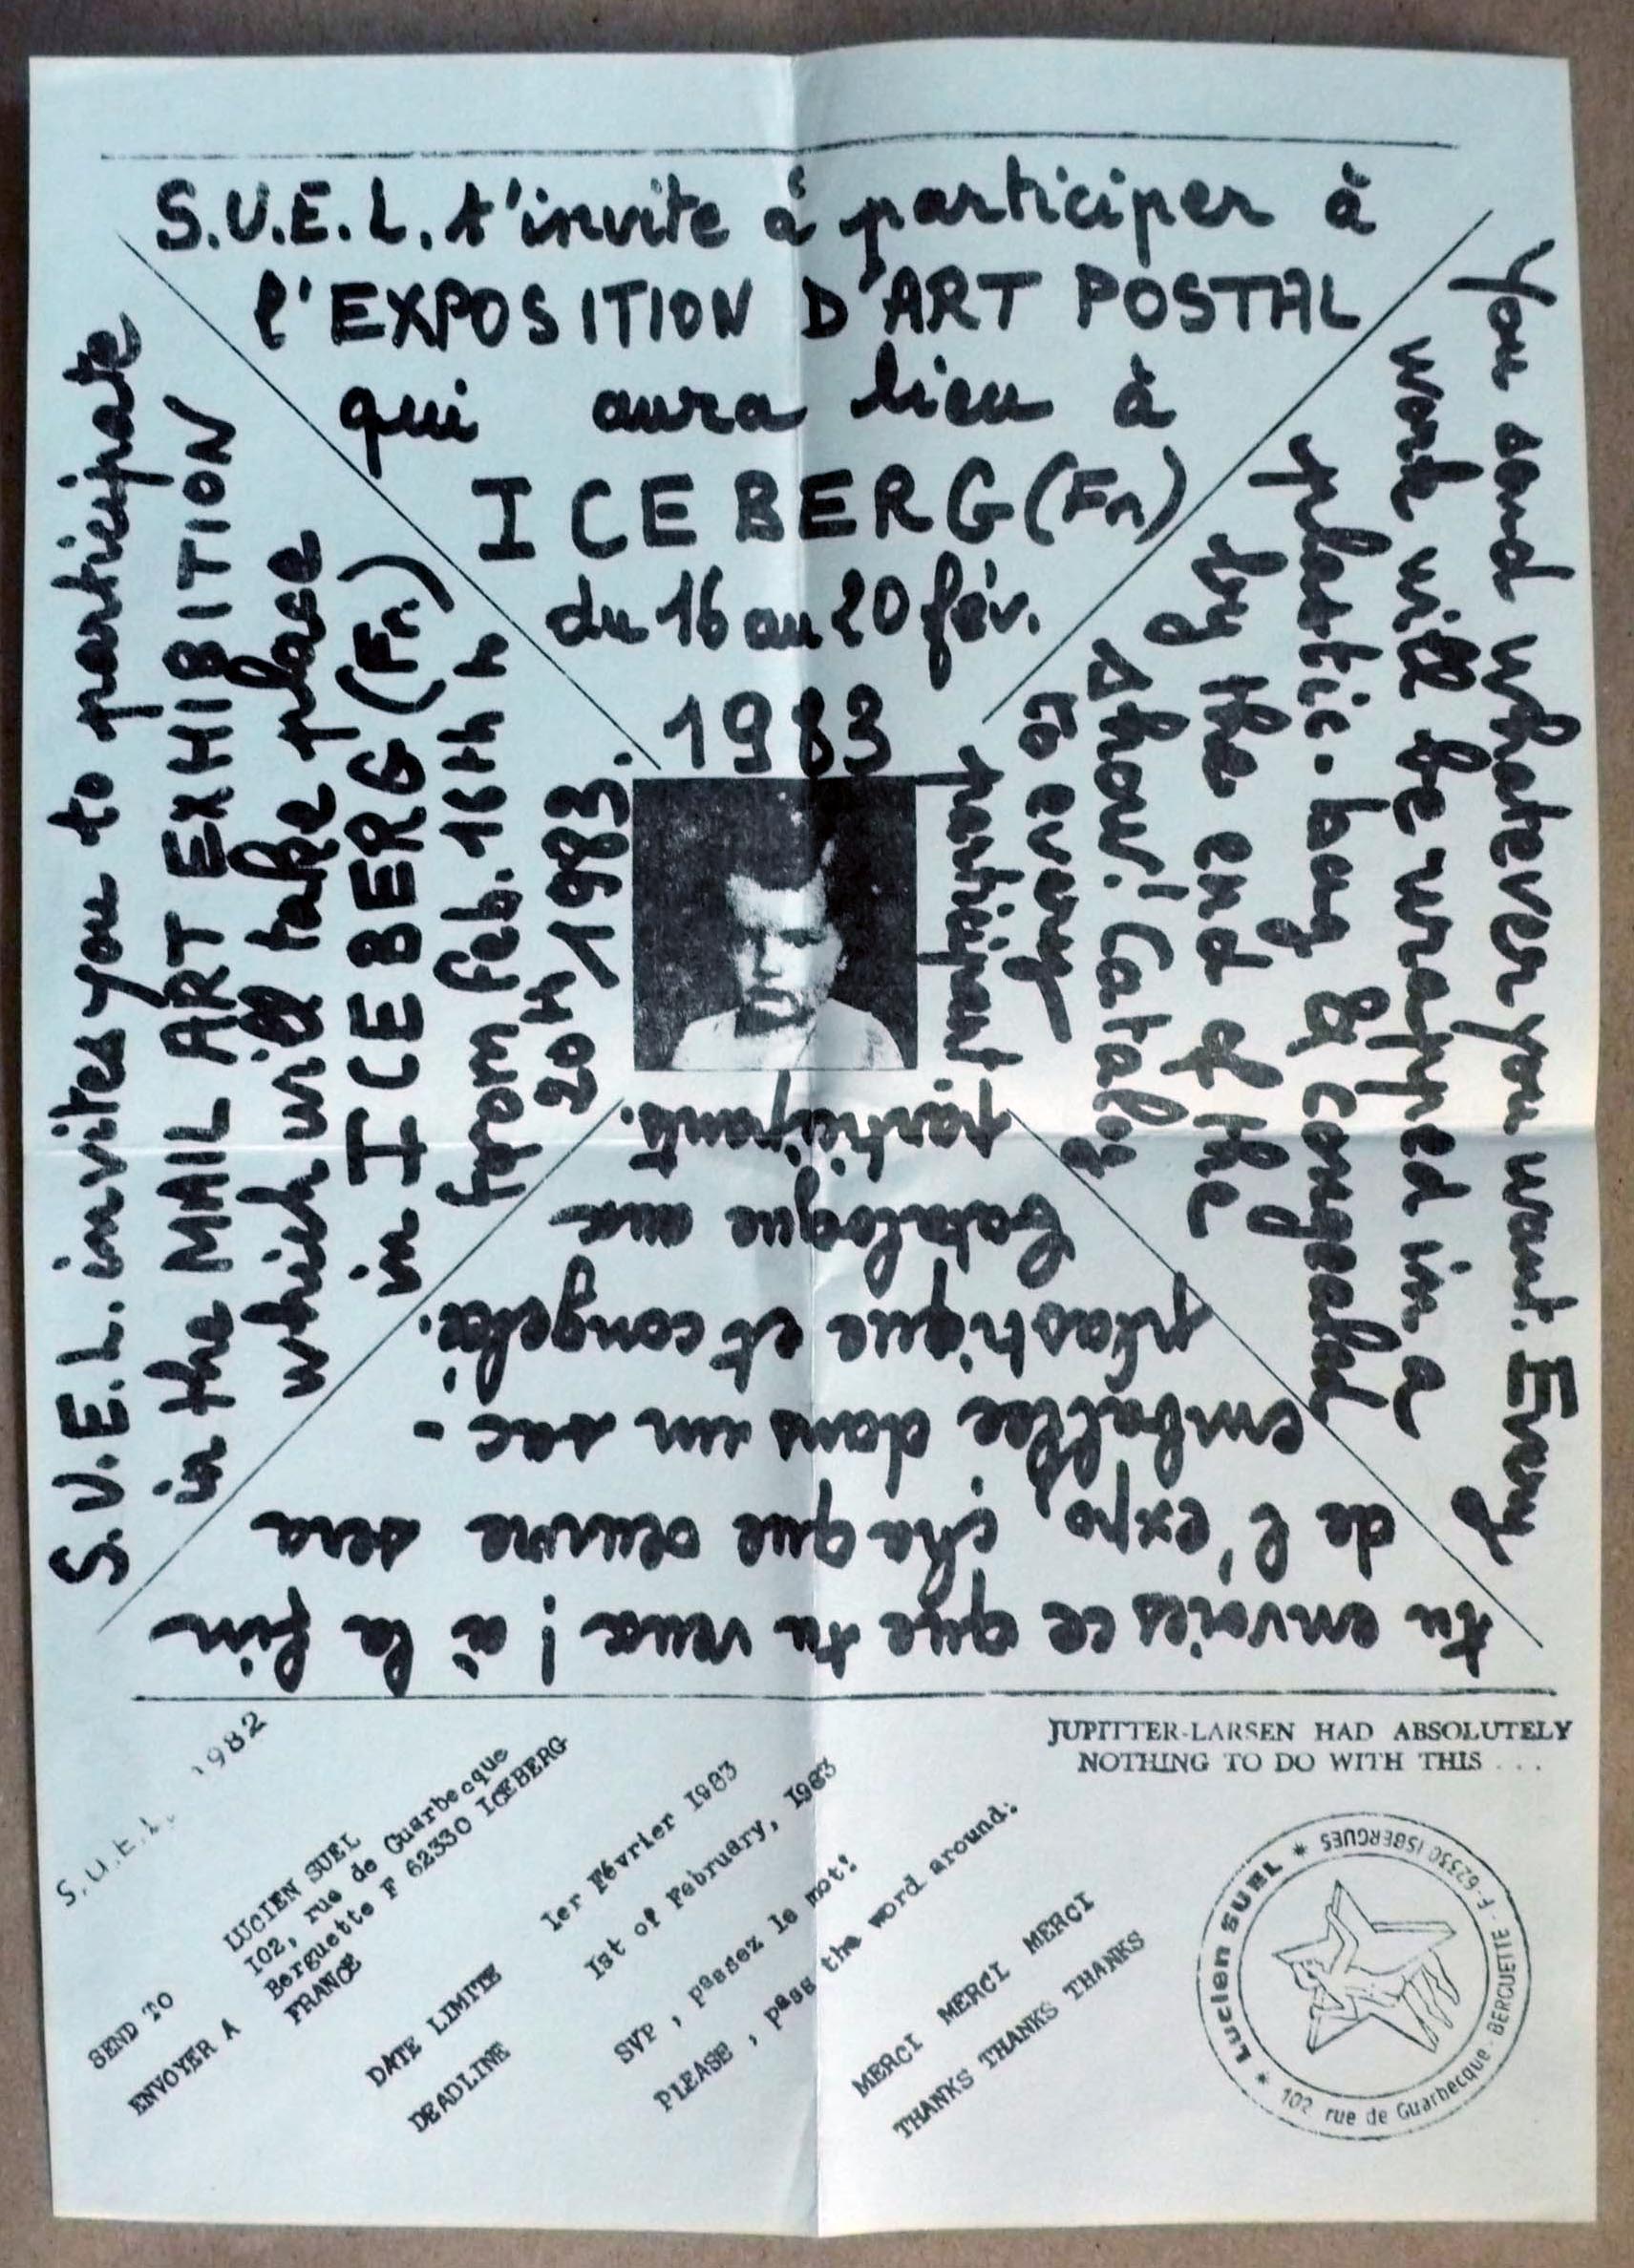 S.U.E.L. t'invite à participer à
l'EXPOSITION D'ART POSTAL
qui aura lieu à
ICEBERG (Fr)
du 16 au 20 fév.
1983
You send whatever you want. Every
work will be wrapped in a
plastic-bag & congealed
by the end of the
show! Catalog
to every
participant
tu envoies ce que tu veux ! à la fin
de l'expo, chaque œuvre sera
emballée dans un sac-
plastique et congelé.
Catalogue aux
participants.
S.U.E.L. invites you to participate
in the MAIL ART EXHIBITION
which will take place
in ICEBERG (Fr)
from Feb. 16th
20th 1983.
S.U.E.L. 1982
SEND TO
ENVOYER A
LUCIEN SUEL
I02, rue de Guarbecque
Berguette F 62330 ICEBERG
FRANCE
DATE LIMITE 1er Février I983
DEADLINE Ist of February, I983
SVP , passez le mot!
PLEASE , pass the word around!
MERCI MERCI MERCI
THANKS THANKS THANKS
JUPITTER-LARSEN HAD ABSOLUTELY
NOTHING TO DO WITH THIS ...
* Lucien SUEL * F-62330 ISBERGUES
102 rue de Guarbecque - BERGUETTE